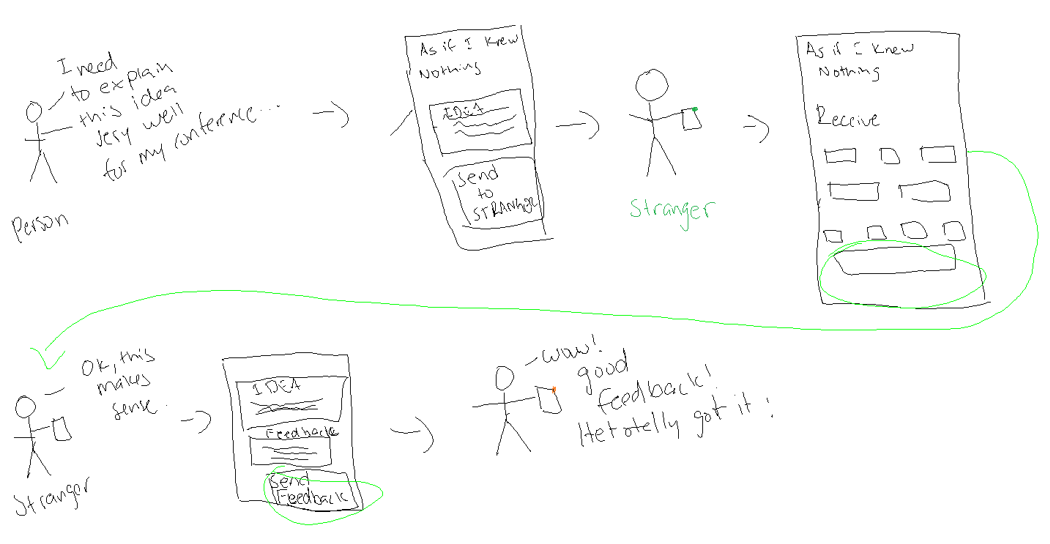 I need
to explain
this idea
very well
for my conference...
Person
As if I knew
Nothing
IDEA
Send
to
STRANGER
Stranger
As if I knew
Nothing
Receive
Ok, this
makes
sense.
Stranger
IDEA
Feedback
Send
Feedback
wow!
good
feedback!
He totelly got it!